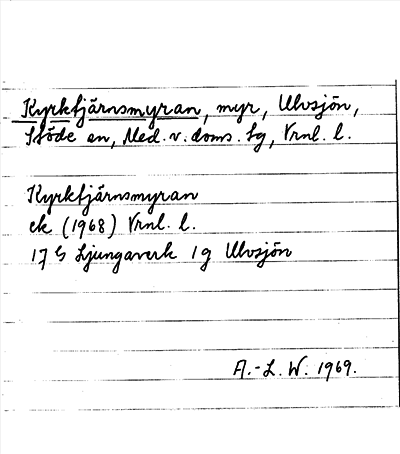 Kyrktjärnsmyran, myr, Ulvsjön,
Stöde sn, Med. v. doms. sg, Vrnl. l.
Kyrktjärnsmyran
ek (1968) Vrnl. l.
17 G Ljungaverk 1 g Ulvsjön
A.-L. W. 1969.